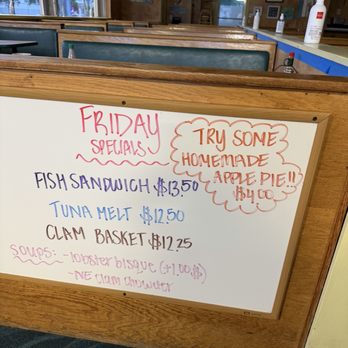 FRIDAY
SPECIALS
TRY SOME
HOMEMADE
APPLE PIE!!
$4.00
FISH SANDWICH $13.50
TUNA MELT $12.50
CLAM BASKET $12.25
SOUPS: -lobster bisque (+1.00$)
-NE clam chowder